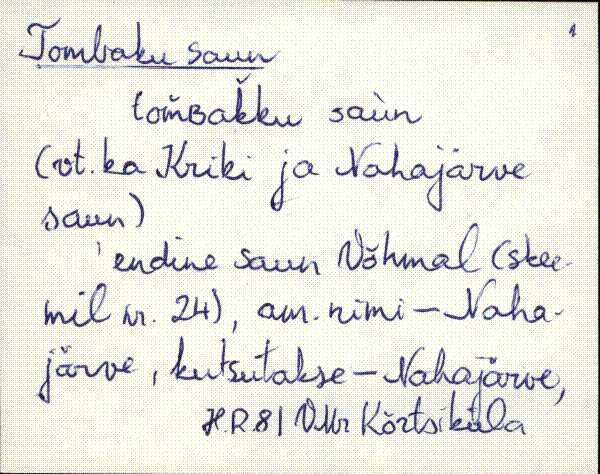 1
Tombaku saun
tom̆ʙak̆ku saùn
(vt. ka Kriki ja Nahajärve
saun)
'endine saun Võhmal (skee-
mil nr. 24), am. nimi – Naha-
järve, kutsutakse – Nahajärve,
H.R. 81 V.Mr Kõrtsiküla